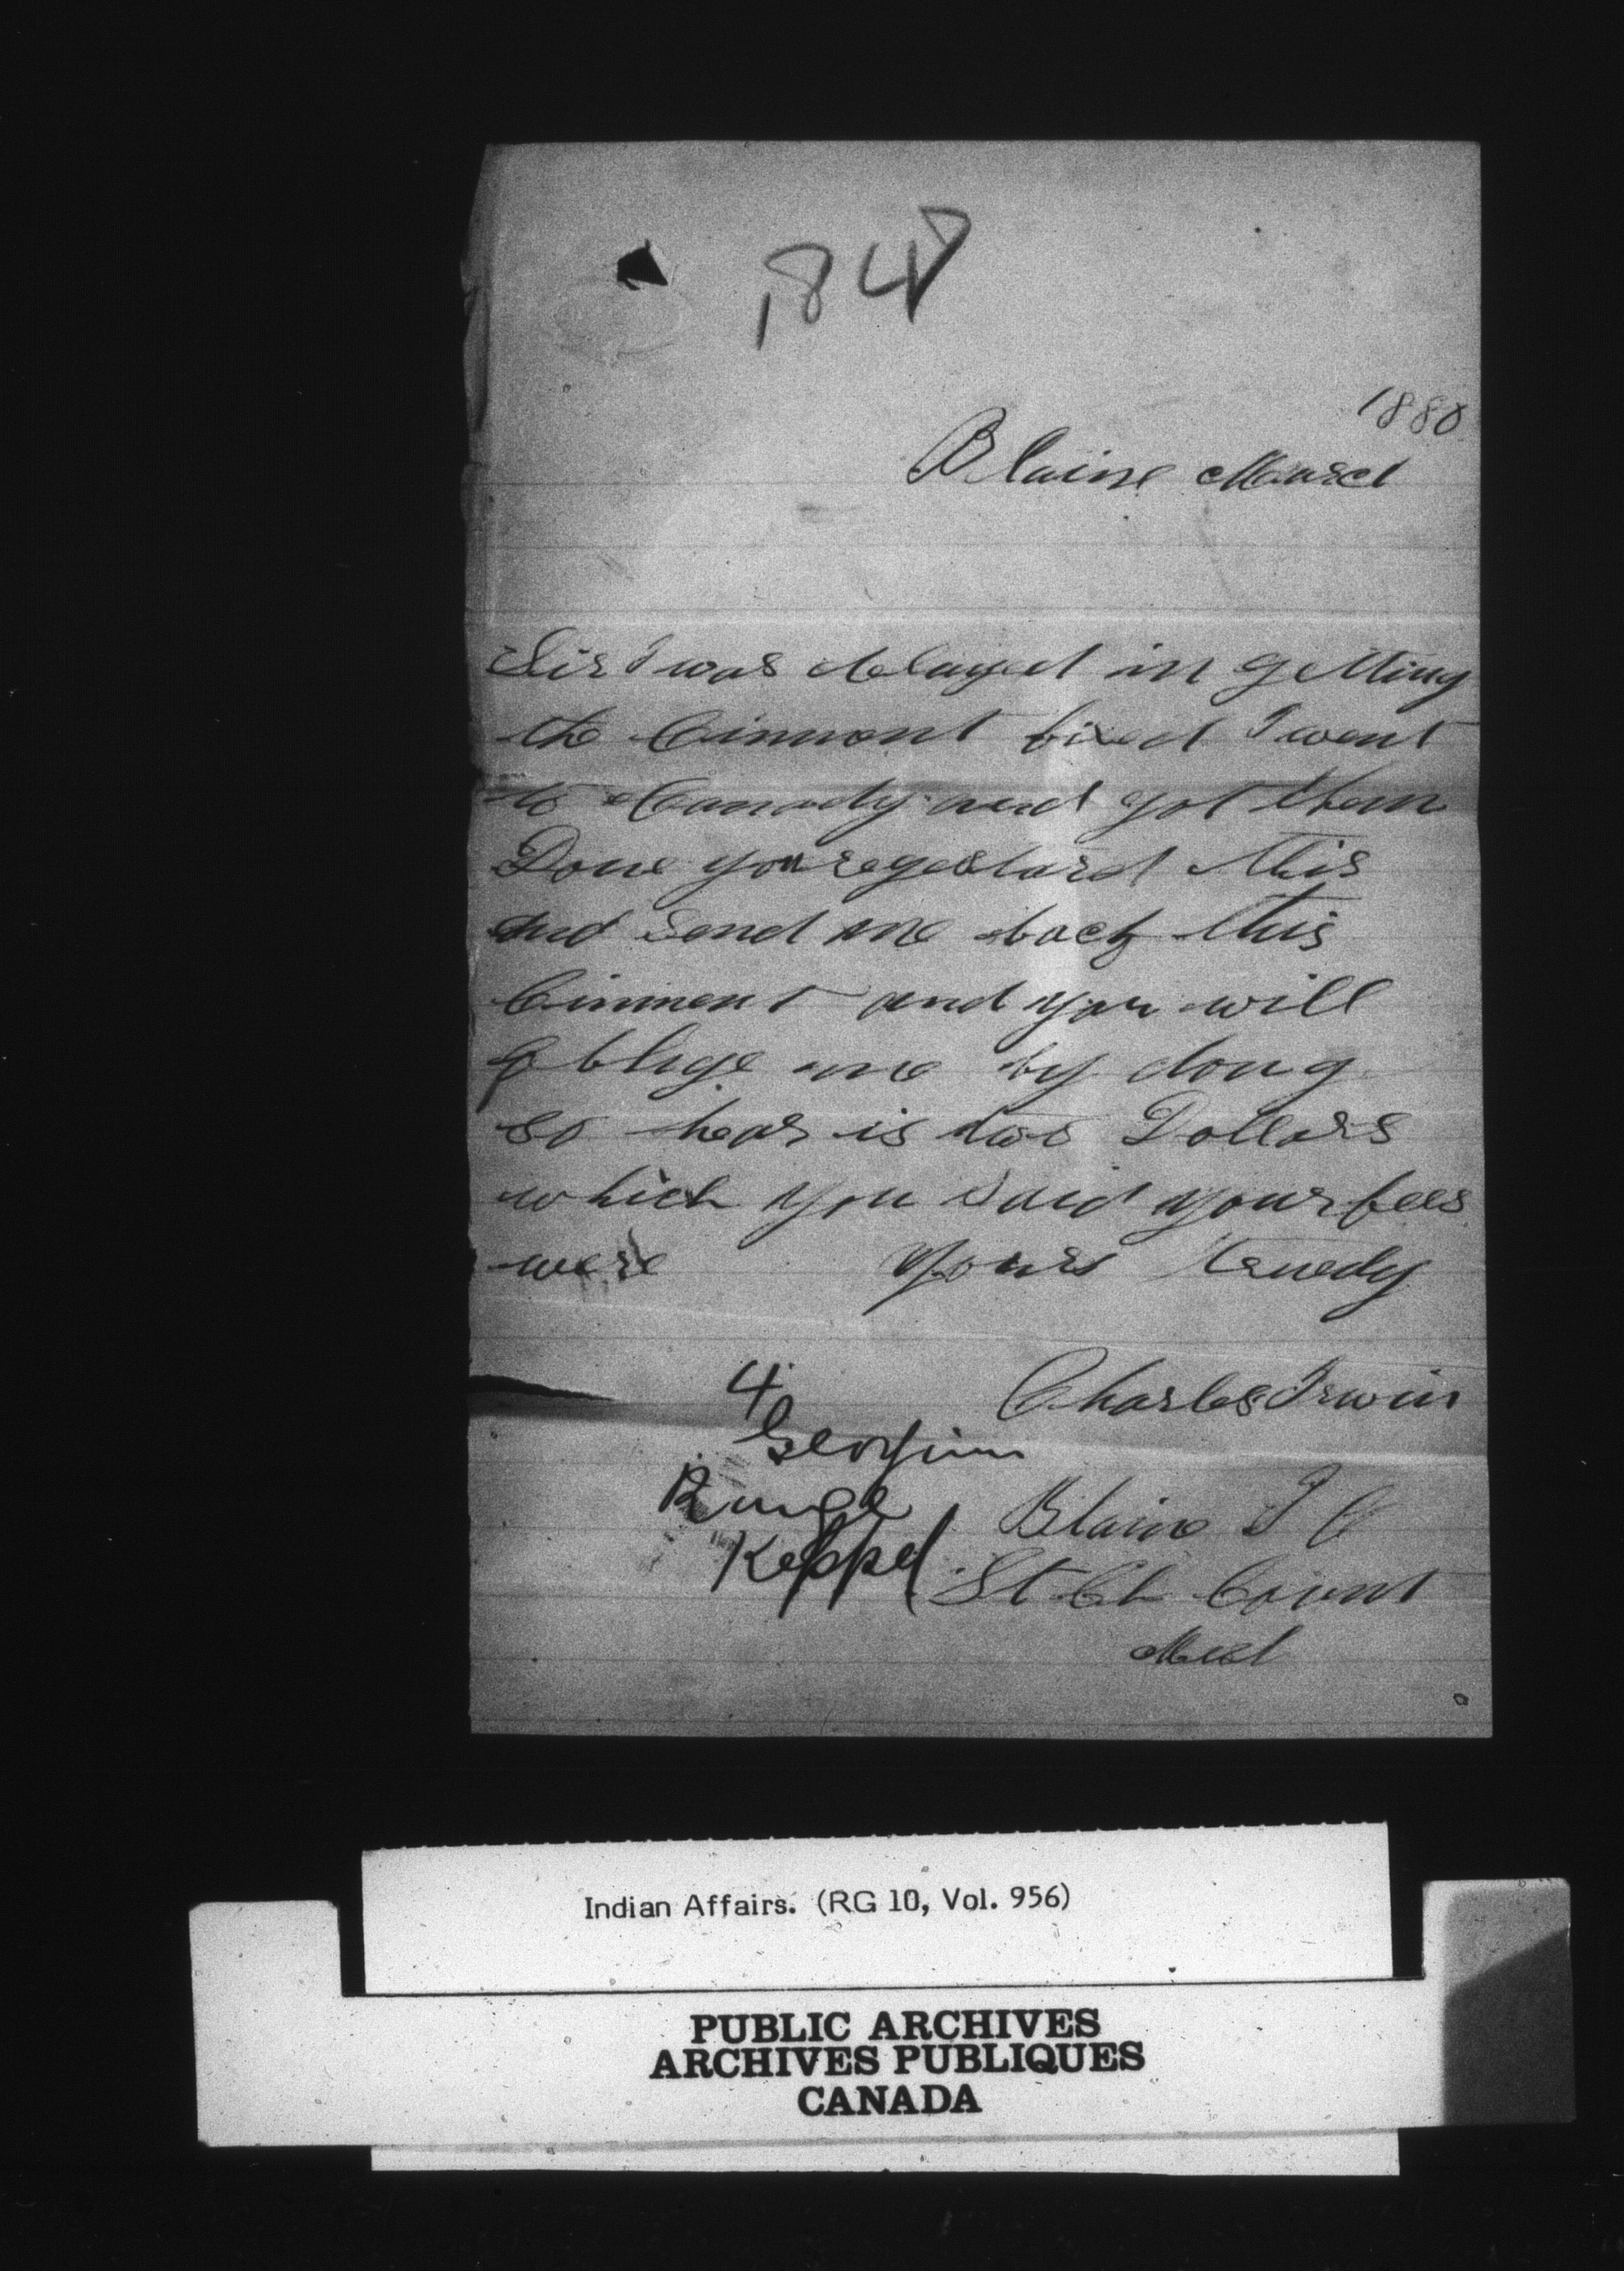 1848
1880
Blaine March
Sir I was delayed in getting
the Cinment fixed I went
to Canady and got them
Done you regestard this
and send me back this
Cinment and you will
oblige me by doug
so hear is two Dollars
which you said your fees
were Yours truedy
Charles Irwin
4
Georgina
Range
Keppel
Blaine
St Cl Count
Mich
Indian Affairs. (RG 10, Vol. 956)
PUBLIC ARCHIVES
ARCHIVES PUBLIQUES
CANADA